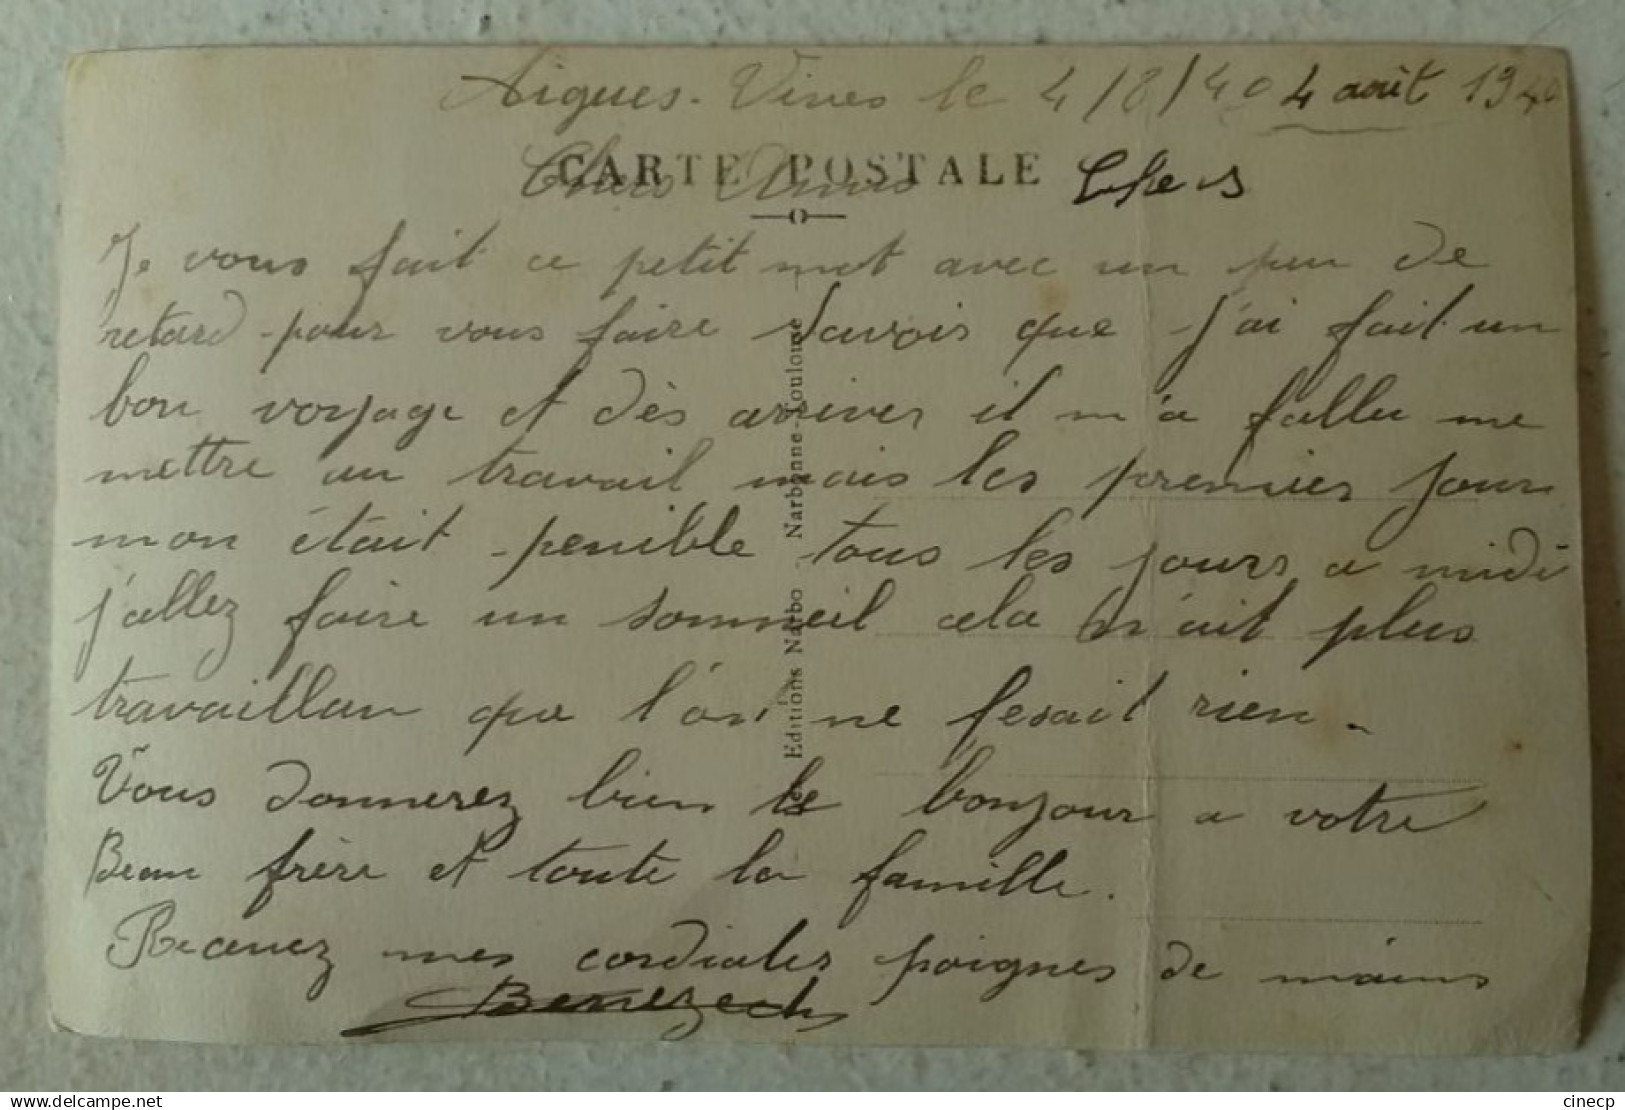 Aigues-Vives le 4/8/40 4 août 1940
CARTE POSTALE
Chers Amis
Je vous fait ce petit mot avec un peu de
retard pour vous faire savois que j'ai fait un
bon voyage et dès arriver il m'a fallu me
mettre au travail mais les premier jour
mon était penible tous les jours a midi
j'allez faire un sommeil cela n'ait plus
travaillan que l'on ne fesait rien.
Vous donnerez bien le bonjour a votre
Beau frère et toute la famille.
Recevez mes cordiales poignes de mains
Benezech
Editions Narbo - Narbonne-Toulouse
cinecp